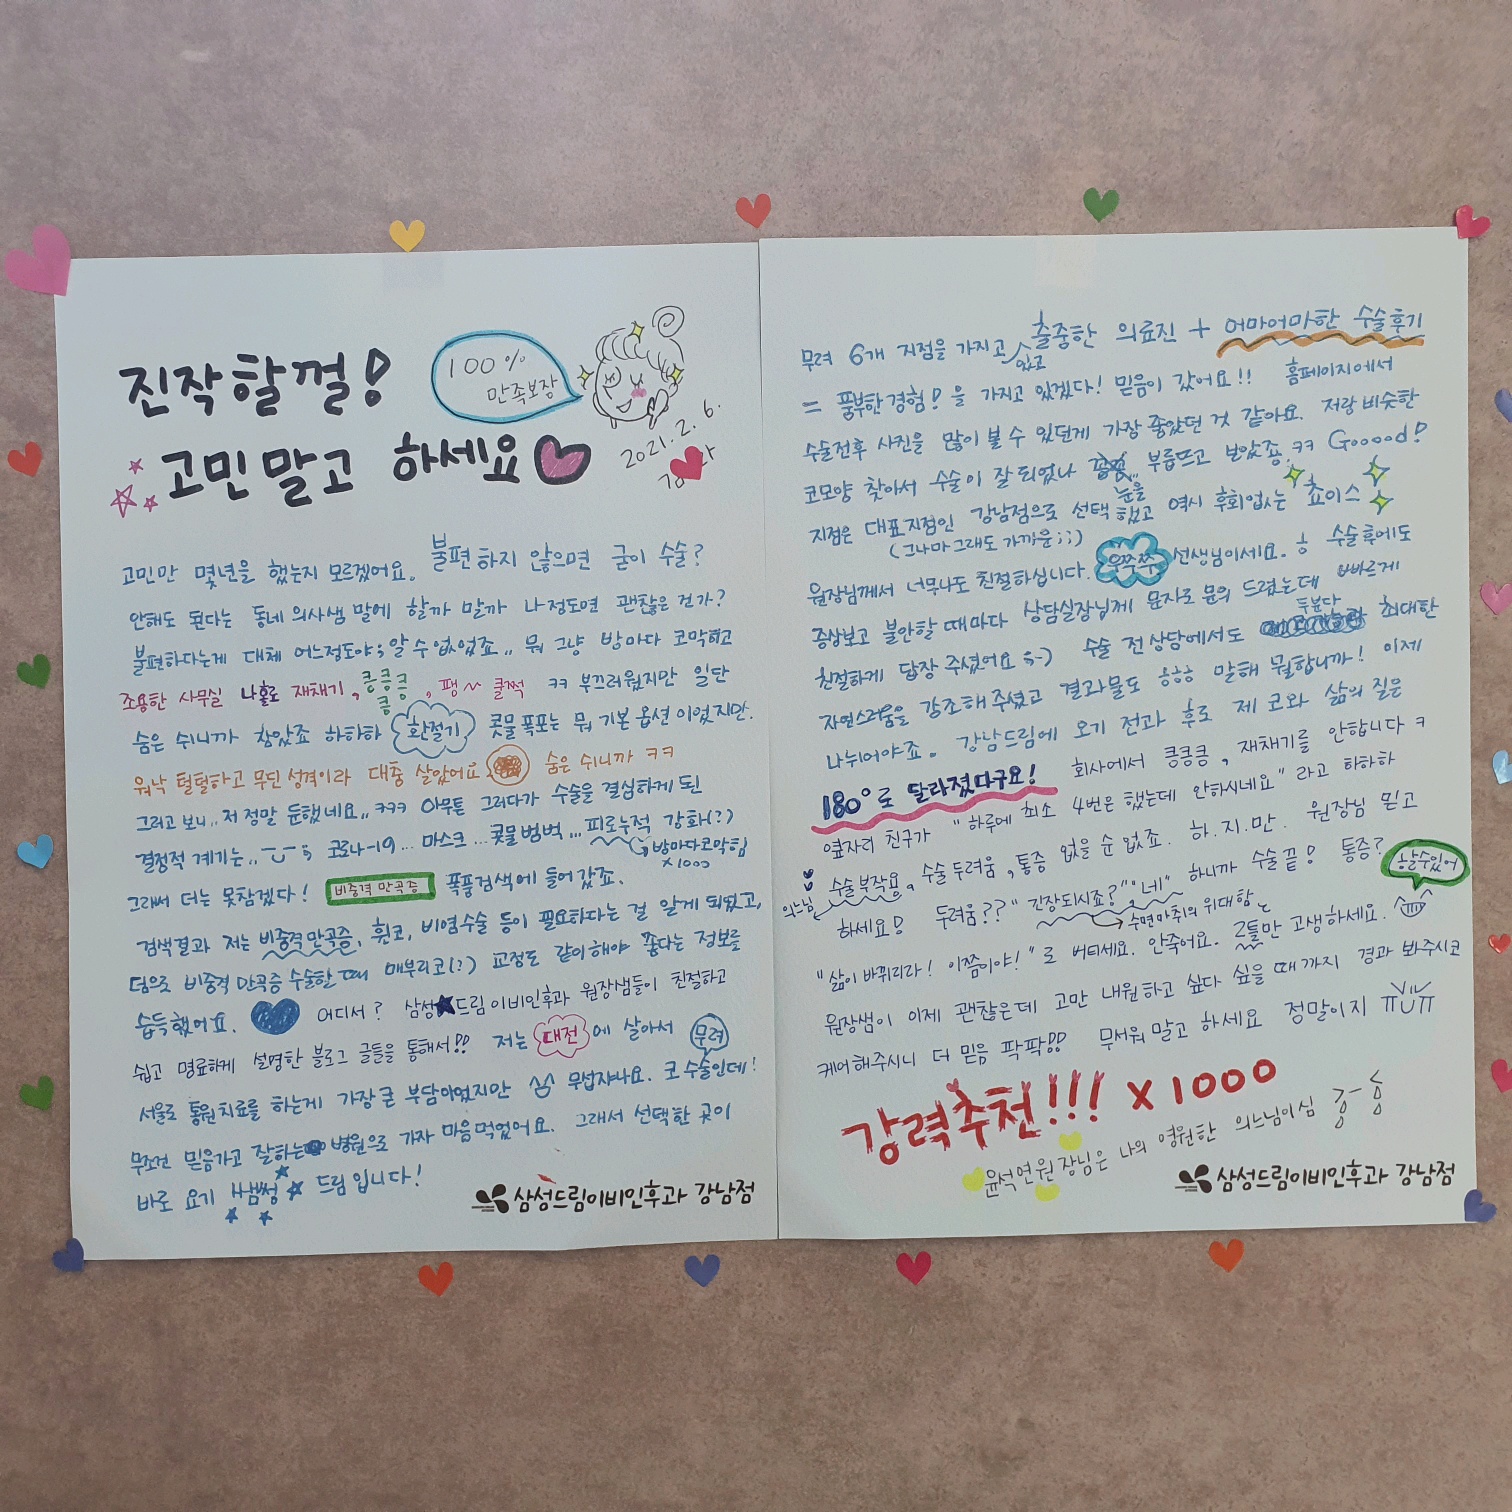 진작할껄!
고민말고 하세요
100%
만족보장
2021. 2. 6.
고민만 몇년을 했는지 모르겠어요. 불편하지 않으면 굳이 수술?
안해도 된다는 동네 의사샘 말에 할까 말까 나정도면 괜찮은건가?
불편하다는게 대체 어느정도야; 알 수 없었죠.. 뭐 그냥 밤마다 코막히고
조용한 사무실 나홀로 재채기, 킁킁킁킁, 팽~ 훌쩍 ㅋㅋ 부끄러웠지만 일단
숨은 쉬니까 참았죠 하하하 환절기 콧물폭포는 뭐 기본 옵션이었지만.
워낙 털털하고 무딘 성격이라 대충 살았어요 숨은 쉬니까 ㅋㅋ
그러고 보니.. 저 정말 둔했네요.. ㅋㅋㅋ 아무튼 그러다가 수술을 결심하게 된
결정적 계기는.. 코로나-19... 마스크... 콧물범벅... 피로누적 강화(?)
밤마다코막힘
x1000
그래서 더는 못참겠다! 비중격 만곡증 폭풍검색에 들어갔죠.
검색결과 저는 비중격만곡증, 휜코, 비염수술 등이 필요하다는 걸 알게 되었고,
덤으로 비중격 만곡증 수술할 때 매부리코(?) 교정도 같이해야 좋다는 정보를
습득했어요. 어디서? 삼성★드림이비인후과 원장샘들이 친절하고
쉽고 명료하게 설명한 블로그 글들을 통해서!! 저는 대전에 살아서 무려
서울로 통원치료를 하는게 가장 큰 부담이었지만 무섭쟈나요. 코 수술인데!
무조건 믿음가고 잘하는 병원으로 가자 마음먹었어요. 그래서 선택한 곳이
바로 요기 쌤썽 드림입니다!
삼성드림이비인후과 강남점
무려 6개 지점을 가지고 있고 출중한 의료진 + 어마어마한 수술후기
= 풍부한경험! 을 가지고 있겠다! 믿음이 갔어요!! 홈페이지에서
수술전후 사진을 많이 볼 수 있던게 가장 좋았던 것 같아요. 저랑 비슷한
코모양 찾아서 수술이 잘 되었나 눈을 부릅뜨고 보았죠. ㅋㅋ Gooood!
지점은 대표지점인 강남점으로 선택했고 역시 후회없는 쵸이스
(그나마 그래도 가까운;;)
원장님께서 너무나도 친절하십니다. 우쭈쭈 선생님이세요. 수술후에도
증상보고 불안할 때마다 상담실장님께 문자로 문의 드렸는데 빠르게
친절하게 답장 주셨어요 :-) 수술 전 상담에서도 두분다 최대한
자연스러움을 강조해주셨고 결과물도 말해 뭘합니까! 이제
나뉘어야죠. 강남드림에 오기 전과 후로 제 코와 삶의 질은
180°로 달라졌다구요! 회사에서 킁킁킁, 재채기를 안합니다 ㅋ
옆자리 친구가 "하루에 최소 4번은 했는데 안하시네요" 라고 하하하
수술 부작용, 수술두려움, 통증 없을 순 없죠. 하.지.만. 원장님 믿고
의느님
하세요! 두려움?? "긴장되시죠?" "네" 하니까 수술끝! 통증? 할수있어
수면마취의 위대함
"삶이 바뀌리라! 이쯤이야!" 로 버티세요. 안죽어요. 2틀만 고생하세요.
원장쌤이 이제 괜찮은데 고만 내원하고 싶다 싶을 때까지 경과 봐주시고
케어해주시니 더 믿음 팍팍!! 무서워말고 하세요 정말이지 ㅠUㅠ
강력추천!!! x1000
윤석연원장님은 나의 영원한 의느님이심
삼성드림이비인후과 강남점